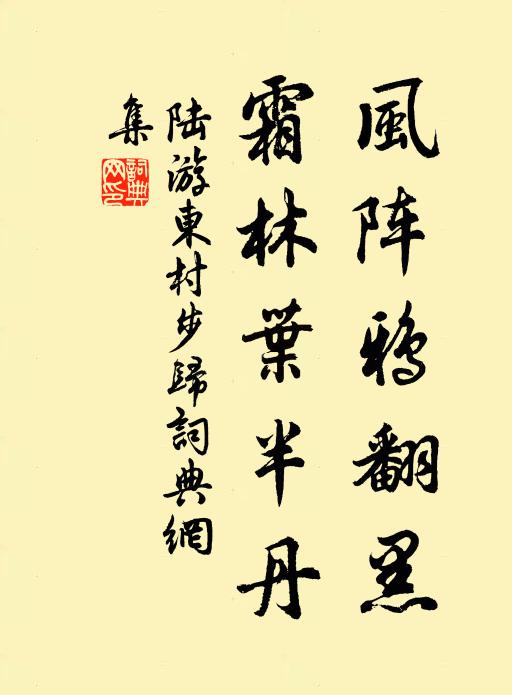 風阵鴉翻黑
霜林葉半丹
陆游東村步歸詞典網
集
詞典
网印